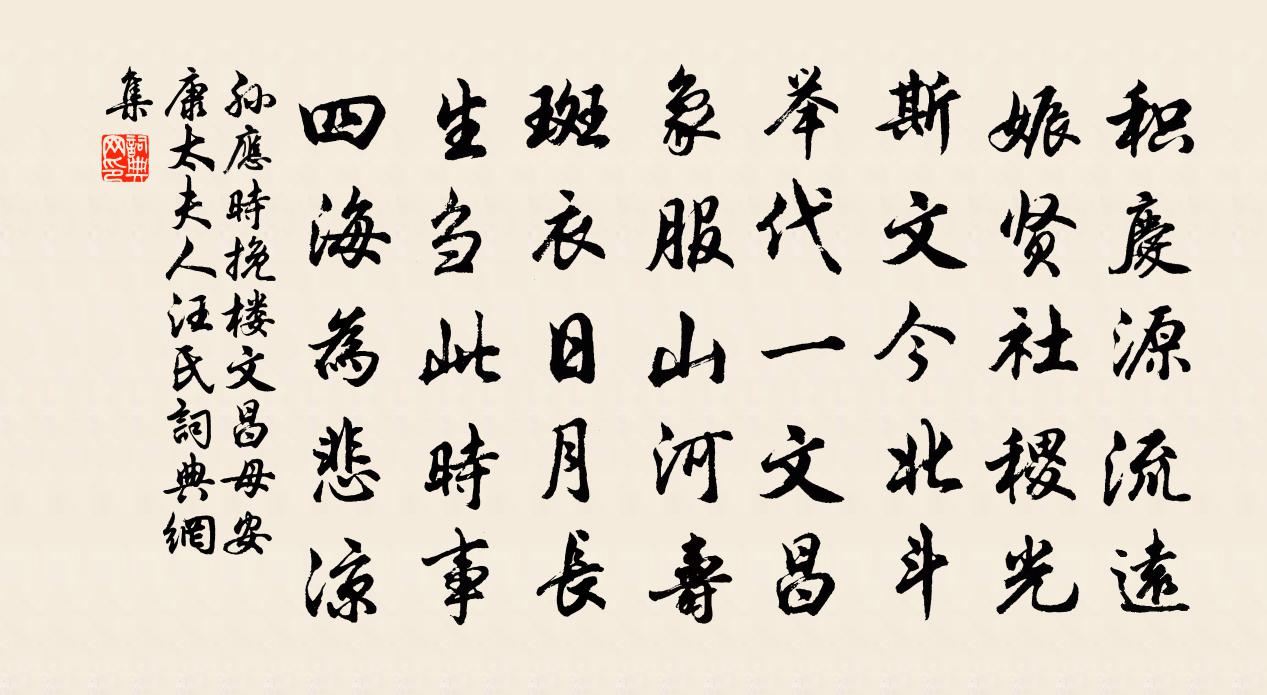 积慶源流遠
娠贤社稷光
斯文今北斗
举代一文昌
象服山河壽
斑衣日月長
生当此時事
四海為悲凉
孙應時挽楼文昌母安
康太夫人汪氏詞典網
集
詞典
网印